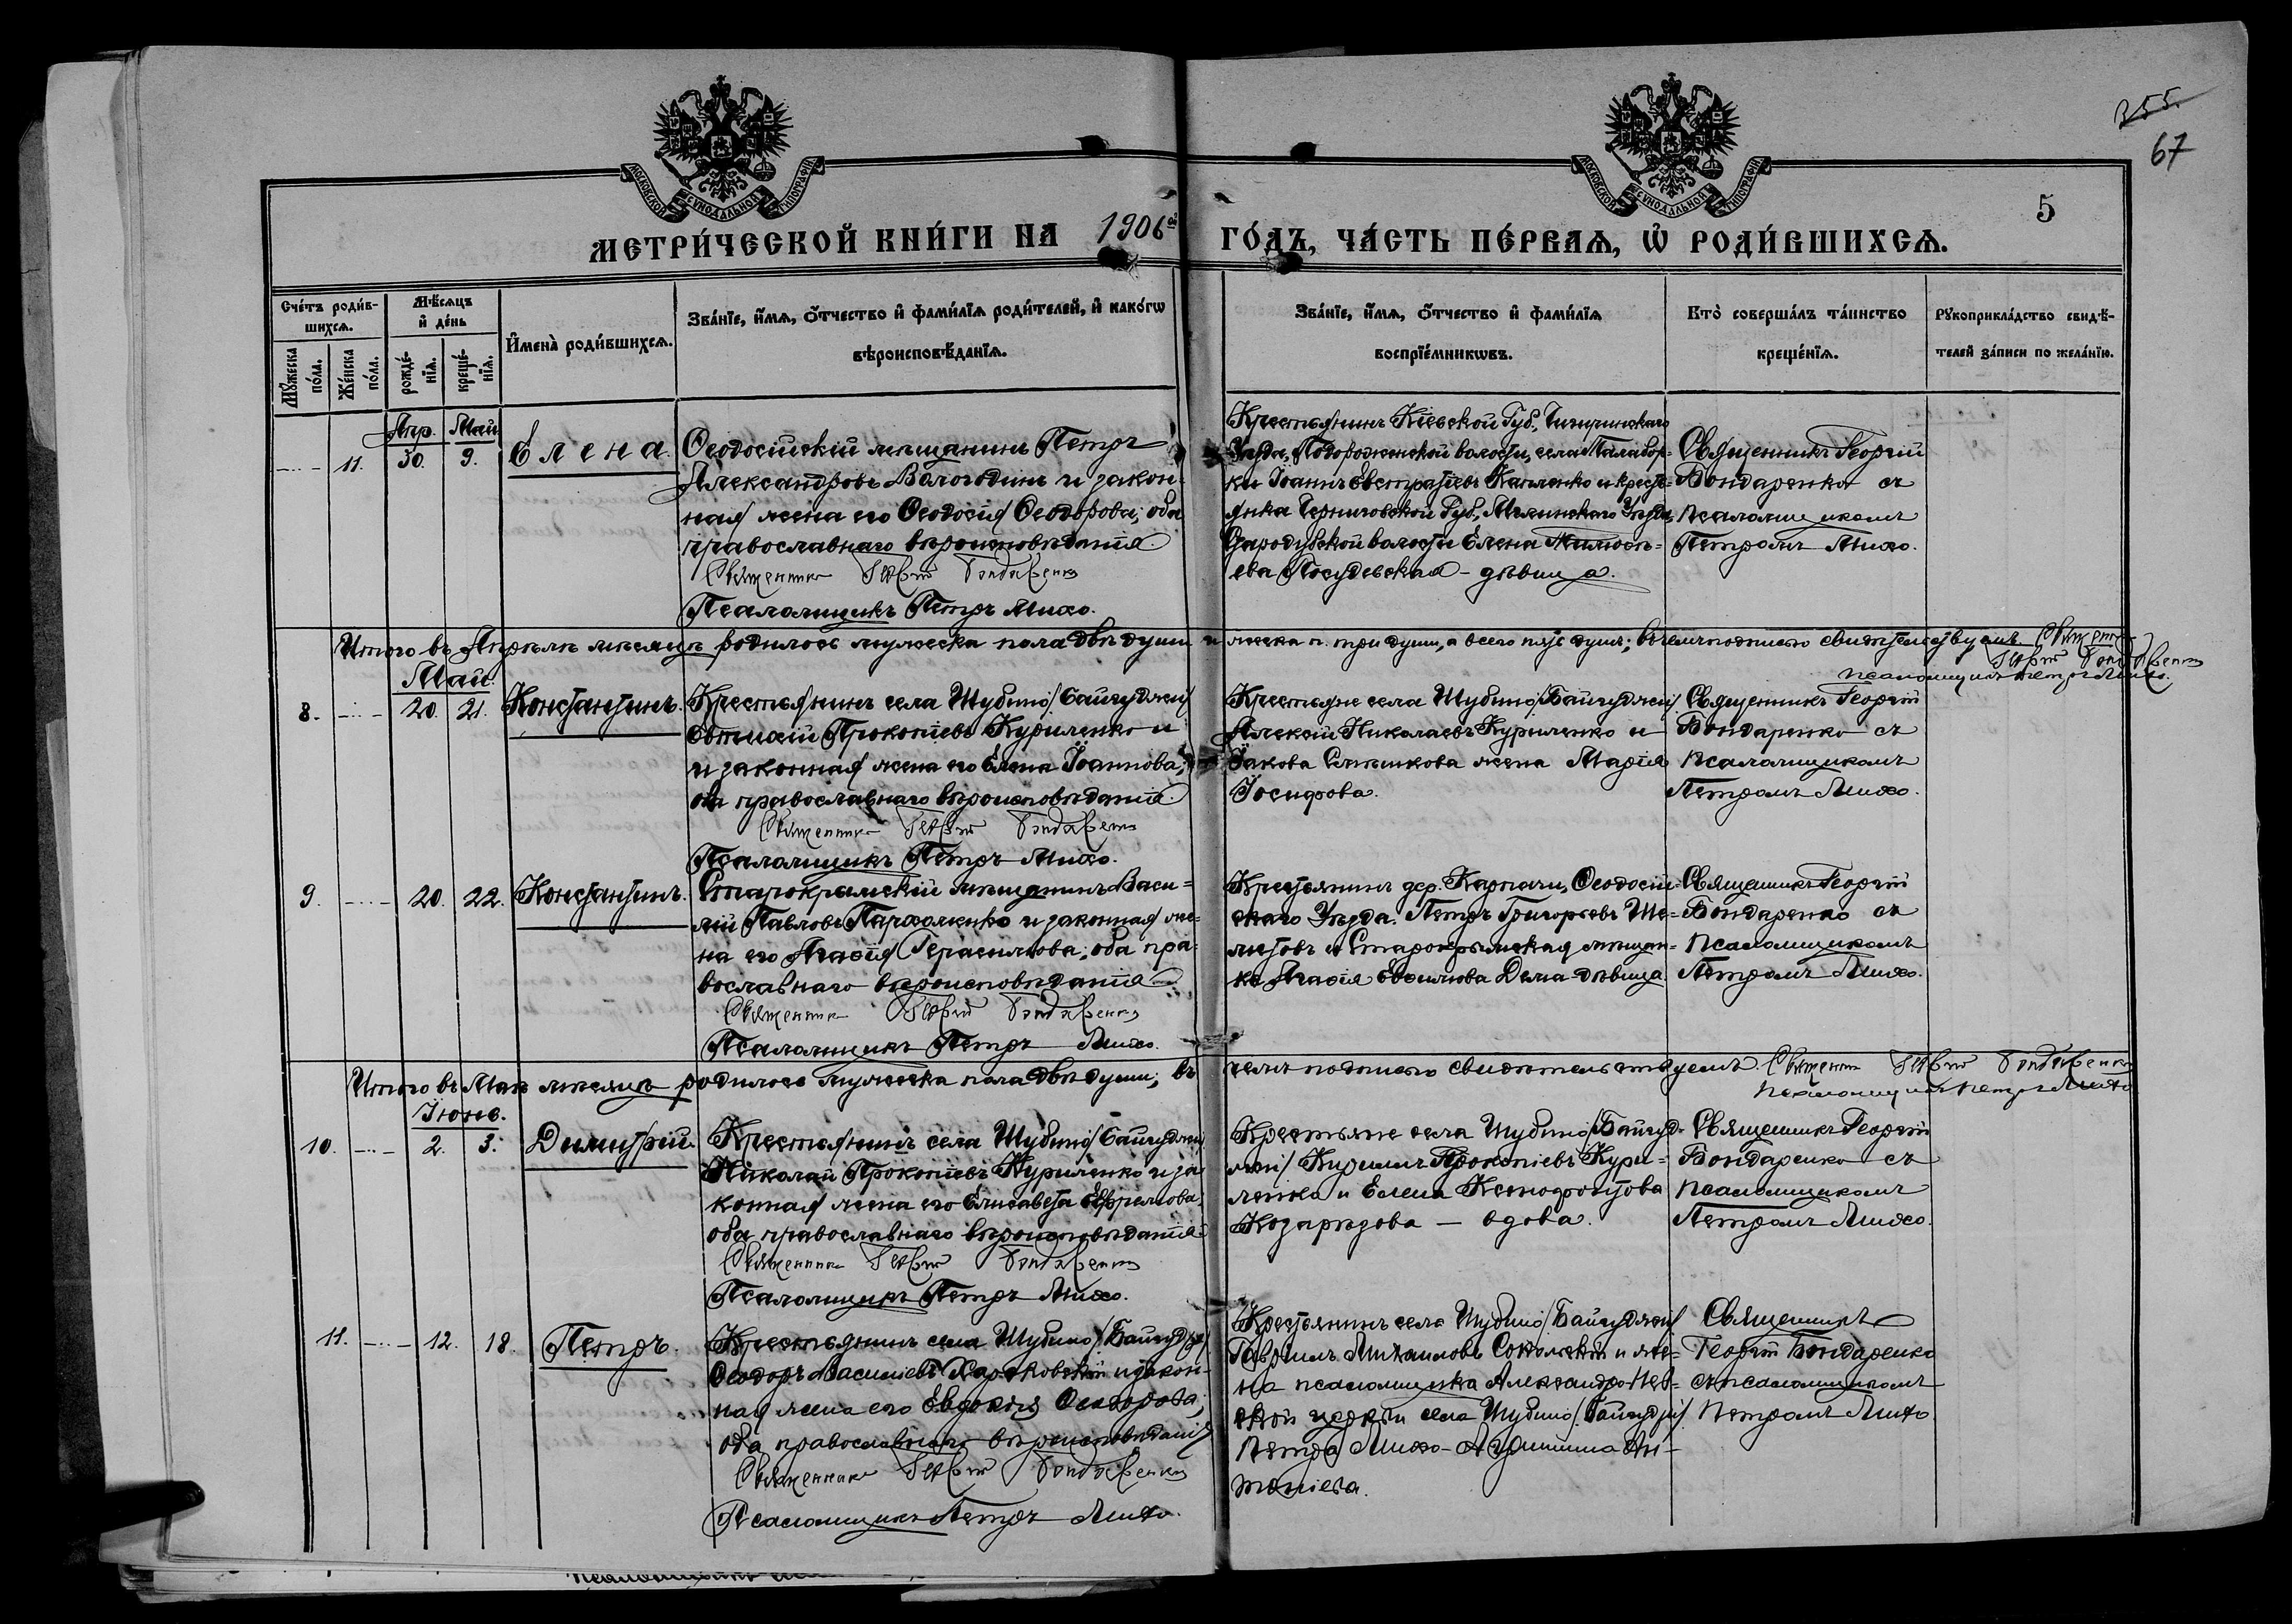 355.
67
5
МОСКОВСКОЙ СѴНОДАЛЬНОЙ ТИПОГРАФІИ
МОСКОВСКОЙ СѴНОДАЛЬНОЙ ТИПОГРАФІИ
МЕТРИ́ЧЕСКОЙ КНИ́ГИ НА 1906ой ГО́ДЪ, ЧА́СТЬ ПЕ́РВАѦ, Ѡ҆ РОДИ́ВШИХСѦ.
Сче́тъ роди́в-
шихсѧ.
Мꙋ́жеска
по́ла.
Же́нска
по́ла.
Мѣ́сѧцъ
и҆ де́нь
рожде́-
нїѧ.
креще́-
нїѧ.
И҆мена̀ роди́вшихсѧ.
Зва́нїе, и҆́мѧ, ѻ҆́тчество и҆ фами́лїѧ роди́телей, и҆ како́гѡ
вѣроисповѣ́данїѧ.
Зва́нїе, и҆́мѧ, ѻ҆́тчество и҆ фами́лїѧ
воспрїе́мникѡвъ.
Кто̀ соверша́лъ та́инство
креще́нїѧ.
Рꙋкоприкла́дство свидѣ́-
телей за́писи по жела́нїю.
Апр. Май
11. 30. 9. Елена.
Ѳеодосійскій мѣщанинъ Петръ
Александровъ Вологодинъ и закон-
ная жена его Ѳеодосія Ѳеодорова; оба
православнаго вѣроисповѣданія.
Священникъ Георгій Бондаренко
Псаломщикъ Петръ Михо.
Крестьянинъ Кіевской Губ., Чигиринскаго
Уѣзда, Подорожненской волости, села
ки Іоаннъ Евстратіевъ и кресть-
янка Черниговской Губ., Мглинскаго Уѣзда,
волости Елена
ева Посудевская - дѣвица.
Священникъ Георгій
Бондаренко съ
псаломщикомъ
Петромъ Михо.
Итого въ Апрѣлѣ мѣсяцѣ родилось мужеска пола двѣ души и женска п. три души, а всего пять душъ; въ чемъ подписью свидѣтельствуемъ. Священ.
Георгій Бондаренко
псаломщикъ Петръ Михо.
Май.
8. 20. 21. Константинъ.
Крестьянинъ села Шубино /Байгуджи/
Евтихій Прокопіевъ Куриленко и
и законная жена его Елена Іоаннова;
оба православнаго вѣроисповѣданія.
Священникъ Георгій Бондаренко
Псаломщикъ Петръ Михо.
Крестьяне села Шубино /Байгуджи/
Алексій Николаевъ Куриленко и
Іакова жена Марія
Іосифова.
Священникъ Георгій
Бондаренко съ
псаломщикомъ
Петромъ Михо.
9. 20. 22. Константинъ.
Старокрымскій мѣщанинъ Васи-
лій Павловъ Пархоменко и законная же-
на его Агафія Герасимова; оба пра-
вославнаго вѣроисповѣданія
Священникъ Георгій Бондаренко
Псаломщикъ Петръ Михо.
Крестьянинъ дер. Карпачи, Ѳеодосій-
скаго Уѣзда. Петръ Григорьевъ Ше-
и Старокрымская мѣщан-
ка Агафія дѣвица
Священникъ Георгій
Бондаренко съ
псаломщикомъ
Петромъ Михо.
Итого въ Маѣ мѣсяцѣ родилось мужеска пола двѣ души; въ чемъ подписью свидѣтельствуемъ. Священ. Георгій Бондаренко
псаломщикъ Петръ Михо
Іюнь.
10. 2. 3. Димитрій.
Крестьянинъ села Шубино /Байгуджи/
Николай Прокопіевъ Куриленко и за
конная жена его Елисавета Ефремова
оба православнаго вѣроисповѣданія.
Священникъ Георгій Бондаренко
Псаломщикъ Петръ Михо.
Крестьяне села Шубино /Байгуд-
жи/ Кириллъ Прокопіевъ Кури-
ленко и Елена Ксенофонтова
Козарѣзова — вдова.
Священникъ Георгій
Бондаренко съ
псаломщикомъ
Петромъ Михо.
11. 12. 18. Петръ.
Крестьянинъ села Шубино /Байгуджи/
Ѳеодоръ Василіевъ Харьковскій и закон-
ная жена его Евдокія Ѳеодорова;
оба православнаго вѣроисповѣданія
Священникъ Георгій Бондаренко
Псаломщикъ Петръ Михо.
Крестьянинъ села Шубино /Байгуджи/
Гавріилъ Михаиловъ Сокольскій и же-
на псаломщика Александро-Нев-
ской церкви села Шубино /Байгуджи/
Петра Михо - Агрипина Ан-
тоніева.
Священникъ
Георгій Бондаренко
съ псаломщикомъ
Петромъ Михо.